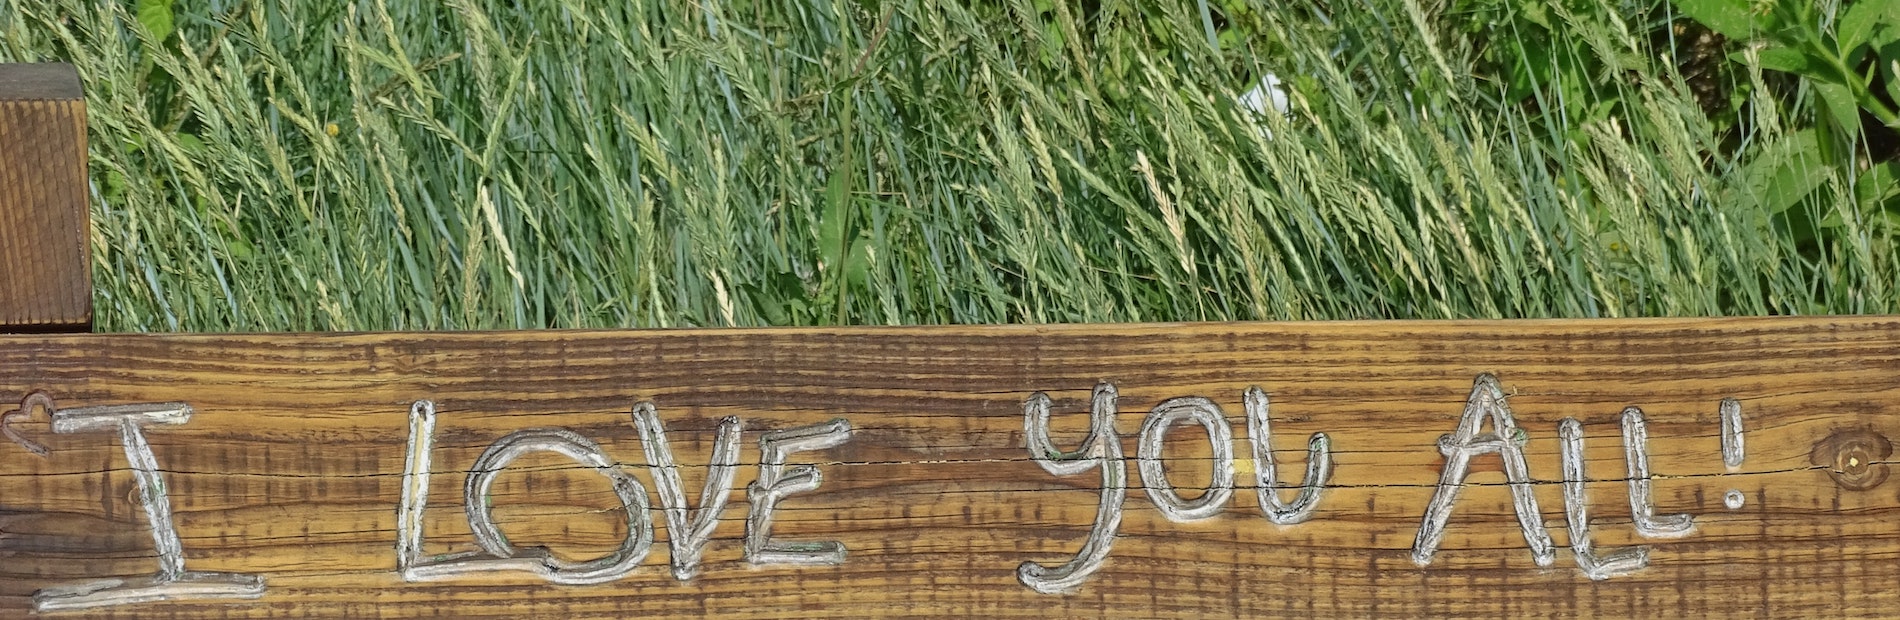 I LOVE YOU ALL!